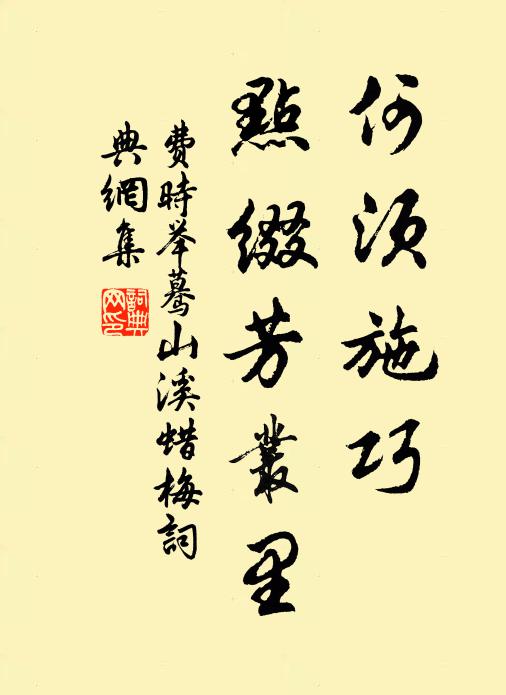 何须施巧
點綴芳叢里
費時举驀山溪蜡梅詞
典網集
詞典
网印